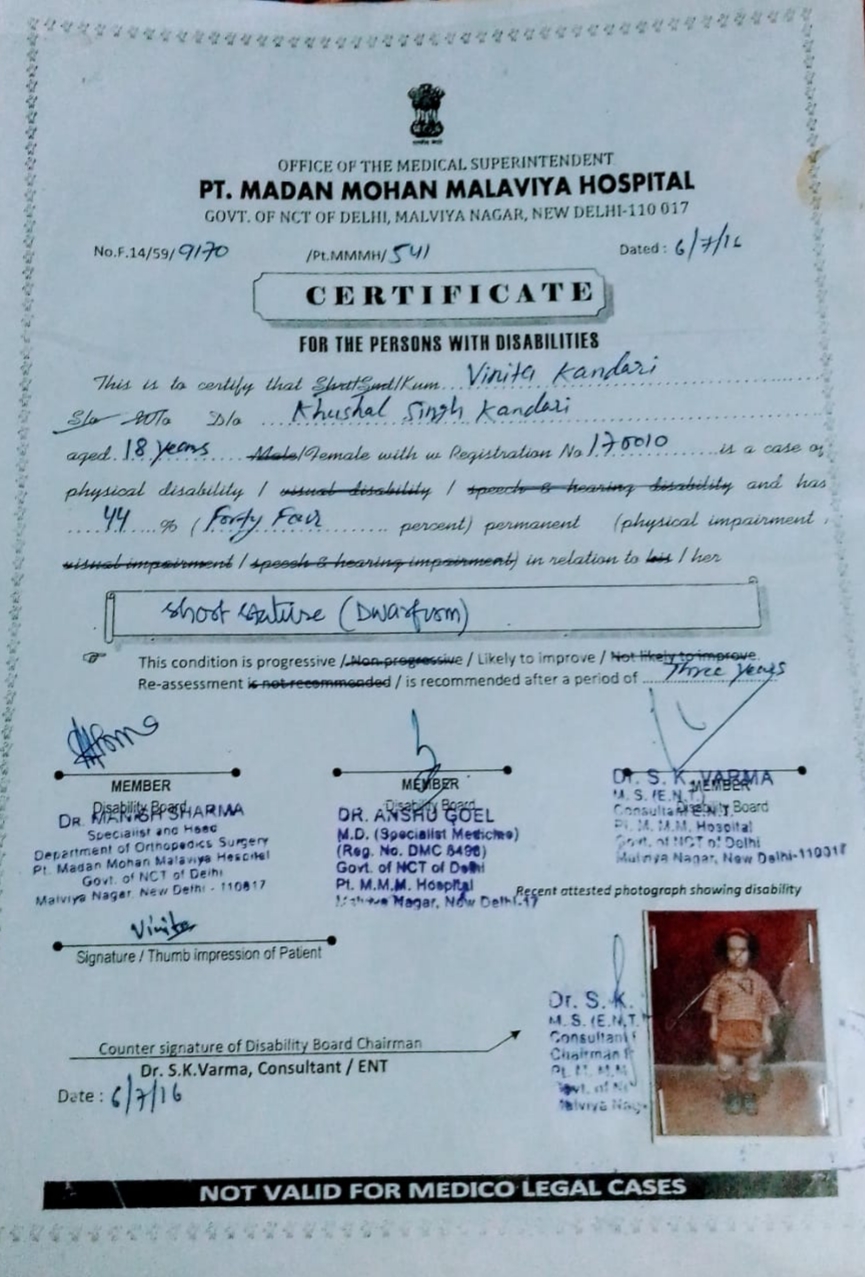 OFFICE OF THE MEDICAL SUPERINTENDENT
PT. MADAN MOHAN MALAVIYA HOSPITAL
GOVT. OF NCT OF DELHI, MALVIYA NAGAR, NEW DELHI-110 017
No.F.14/59/9170 /Pt.MMMH/541 Dated : 6/7/16
CERTIFICATE
FOR THE PERSONS WITH DISABILITIES
This is to certify that Shri/Smt/Kum Vinita Kandari
S/o W/o D/o Khushal Singh Kandari
aged 18 years Male/Female with w Registration No 170010 is a case of
physical disability / visual disability / speech & hearing disability and has
44 % (Forty Four percent) permanent (physical impairment
visual impairment / speech & hearing impairment) in relation to his / her
Short stature (Dwarfism)
This condition is progressive / Non progressive / Likely to improve / Not likely to improve.
Re-assessment is not recommended / is recommended after a period of Three years
MEMBER MEMBER MEMBER
Disability Board Disability Board Disability Board
DR. MANISH SHARMA
Specialist and Head
Department of Orthopedics Surgery
Pt. Madan Mohan Malaviya Hospital
Govt. of NCT of Delhi
Malviya Nagar, New Delhi - 110017
DR. ANSHU GOEL
M.D. (Specialist Medicine)
(Reg. No. DMC 8496)
Govt. of NCT of Delhi
Pt. M.M.M. Hospital
Malviya Nagar, New Delhi-17
Dr. S. K. VARMA
M. S. (E.N.T.)
Consultant E.N.T.
Pt. M. M.M. Hospital
Govt. of NCT of Delhi
Malviya Nagar, New Delhi-110017
Recent attested photograph showing disability
Vinita
Signature / Thumb impression of Patient
Dr. S. K.
M. S. (E.N.T.
Consultant
Chairman
Pt. M. M.M
Govt. of N
Malviya Nag
Counter signature of Disability Board Chairman
Dr. S.K.Varma, Consultant / ENT
Date : 6/7/16
NOT VALID FOR MEDICO LEGAL CASES